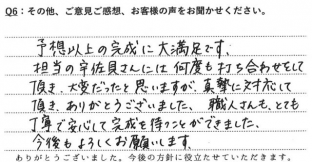 Q6：その他、ご意見ご感想、お客様の声をお聞かせください。
予想以上の完成に大満足です。
担当の宇佐貝さんには何度も打ち合わせをして
頂き、大変だったと思いますが、真摯に対応して
頂き、ありがとうございました。職人さんも、とても
丁寧で安心して完成を待つことができました。
今後もよろしくお願いします。
ありがとうございました。今後の方針に役立たせていただきます。